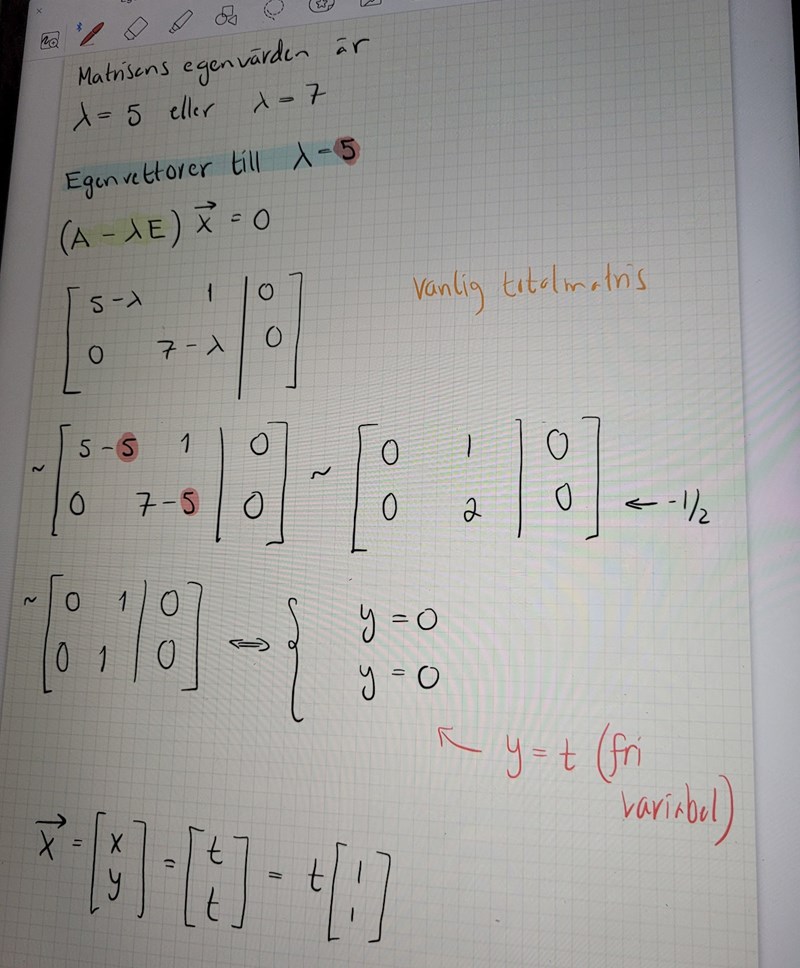 Matrisens egenvärden är
λ = 5 eller λ = 7
Egenvektorer till λ = 5
(A - λE) x⃗ = 0
[ 5-λ 1 | 0 ]
[ 0 7-λ | 0 ]
vanlig totalmatris
~ [ 5-5 1 | 0 ] ~ [ 0 1 | 0 ]
[ 0 7-5 | 0 ] [ 0 2 | 0 ] ← -1/2
~ [ 0 1 | 0 ] ⇔ { y = 0
[ 0 1 | 0 ] y = 0
↖ y = t (fri
variabel)
x⃗ = [ x ] = [ t ] = t [ 1 ]
[ y ] [ t ] [ 1 ]